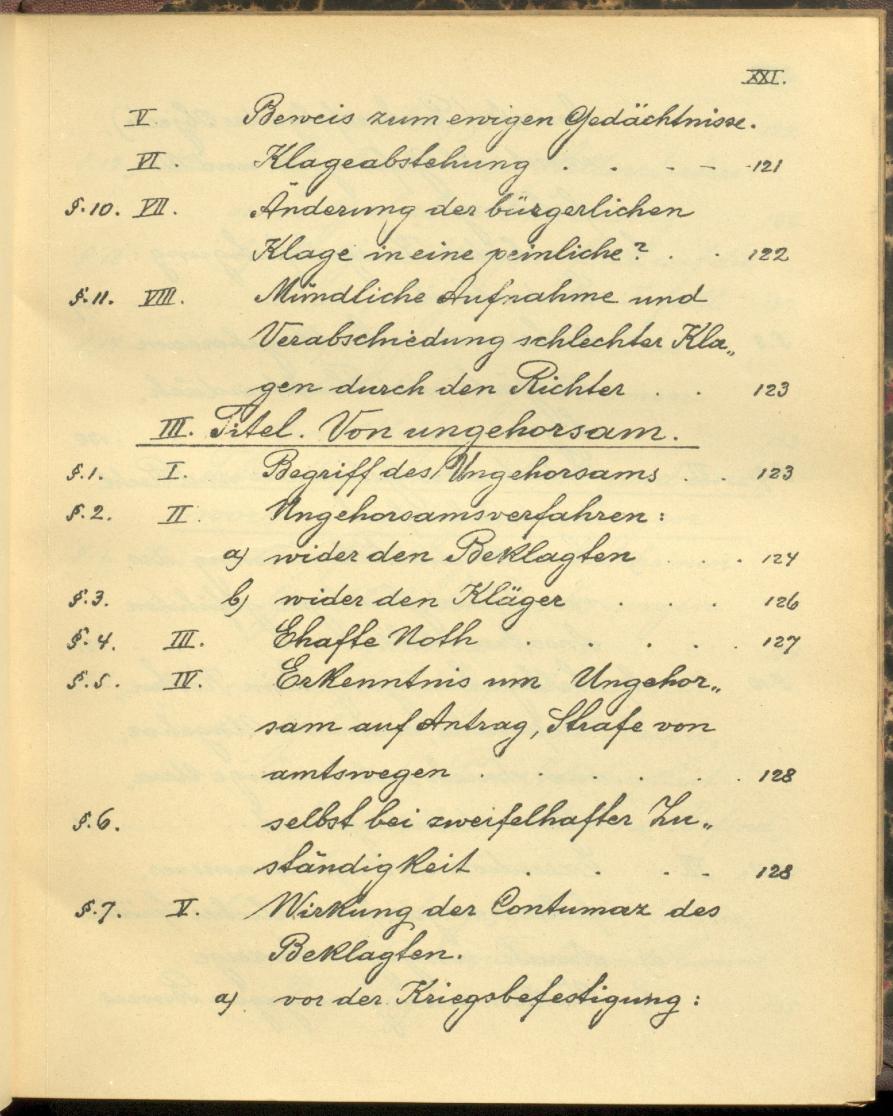 XXI.
V Beweis zum ewigen Gedächtnisse.
VI. Klageabstehung . . . - - 121
§.10. VII. Änderung der bürgerlichen
Klage in eine peinliche? . . 122
§.11. VIII. Mündliche Aufnahme und
Verabschiedung schlechter Kla„
gen durch den Richter . . 123
III. Titel. Von ungehorsam.
§.1. I. Begriff des Ungehorsams . . 123
§.2. II. Ungehorsamsverfahren:
a) wider den Beklagten . . . 124
§.3. b) wider den Kläger . . . 126
§.4. III. Ehafte Noth . . . . 127
§.5. IV. Erkenntnis um Ungehor„
sam auf Antrag, Strafe von
amtswegen . . . . . 128
§.6. selbst bei zweifelhafter Zu„
ständigkeit . . . - 128
§.7. V. Wirkung der Contumaz des
Beklagten.
a) vor der Kriegsbefestigung: